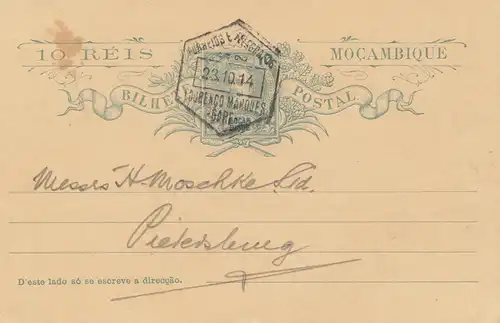 10 RÉIS MOÇAMBIQUE
CORREIOS E TELEGRAPHOS
23.10.14
LOURENÇO MARQUES
GARE
BILHETE POSTAL
Messrs H Moschke Ltd.
Pietersburg
D'este lado só se escreve a direcção.